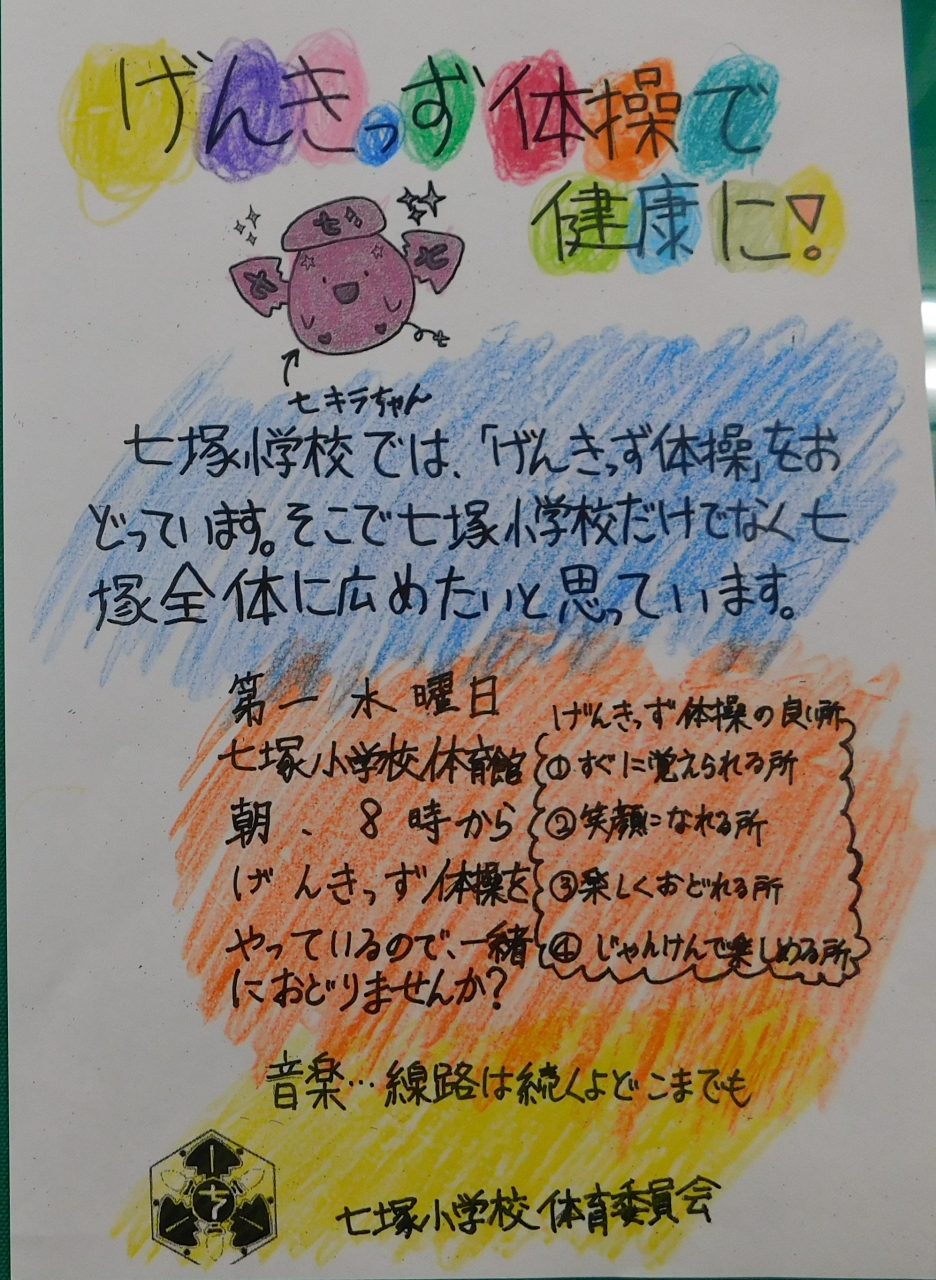 げんきっず体操で
健康に!
七
七キラちゃん
七塚小学校では、「げんきっず体操」をお
どっています。そこで七塚小学校だけでなく七
塚全体に広めたいと思っています。
第一水曜日
七塚小学校体育館
朝、8時から
げんきっず体操を
やっているので、一緒
におどりませんか?
げんきっず体操の良い所
①すぐに覚えられる所
②笑顔になれる所
③楽しくおどれる所
④じゃんけんで楽しめる所
音楽…線路は続くよどこまでも
七塚小学校体育委員会